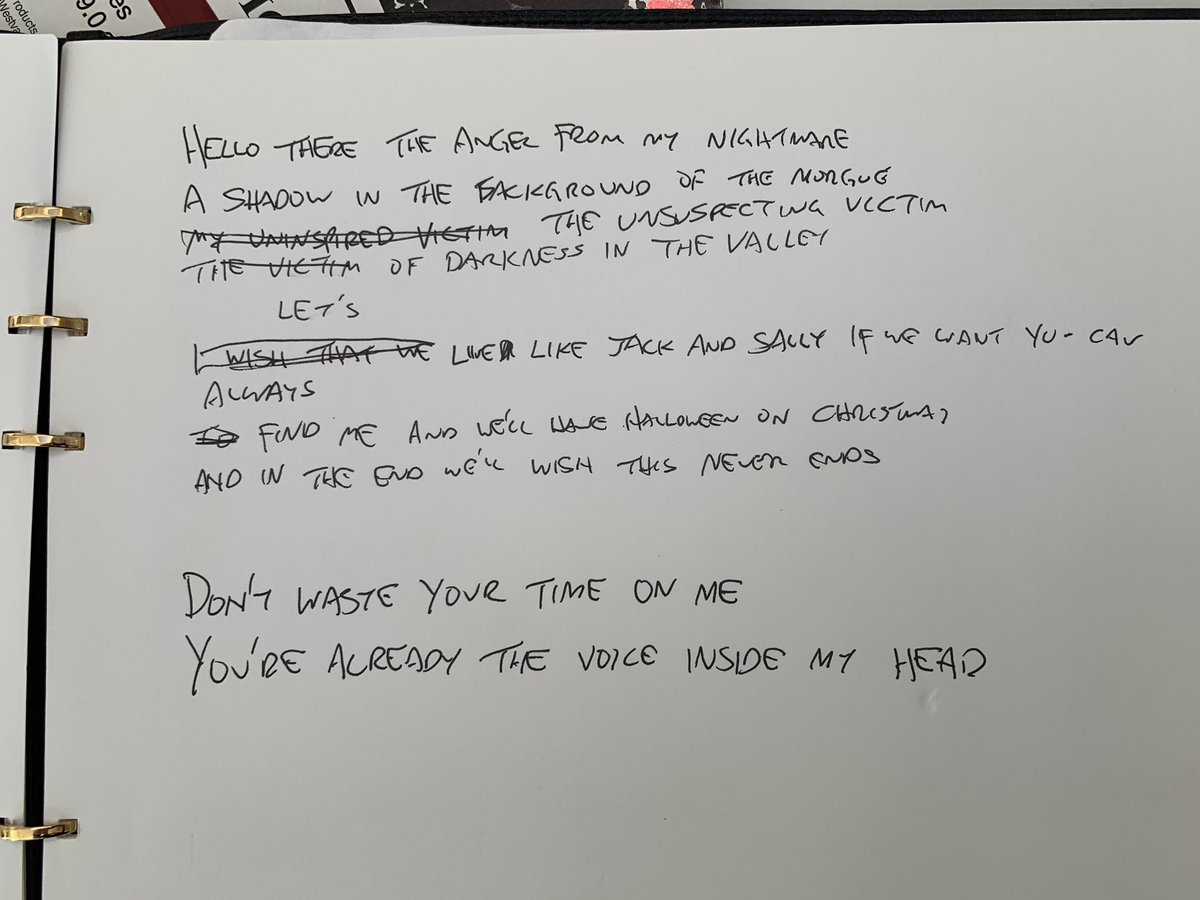 roducts
Westva
9.0
es
HELLO THERE THE ANGER FROM MY NIGHTMARE
A SHADOW IN THE BACKGROUND OF THE MORGUE
MY UNINSPIRED VICTIM THE UNSUSPECTING VICTIM
THE VICTIM OF DARKNESS IN THE VALLEY
LET'S
I WISH THAT WE LIVE LIKE JACK AND SALLY IF WE WANT YOU CAN
ALWAYS
TO FIND ME AND WE'LL HAVE HALLOWEEN ON CHRISTMAS
AND IN THE END WE'LL WISH THIS NEVER ENDS
DON'T WASTE YOUR TIME ON ME
YOU'RE ALREADY THE VOICE INSIDE MY HEAD